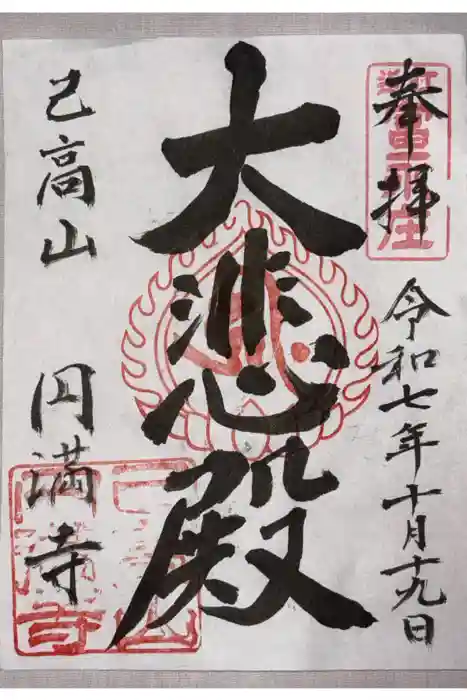 奉拝
令和七年十月十九日
大悲心殿
己高山
円満寺